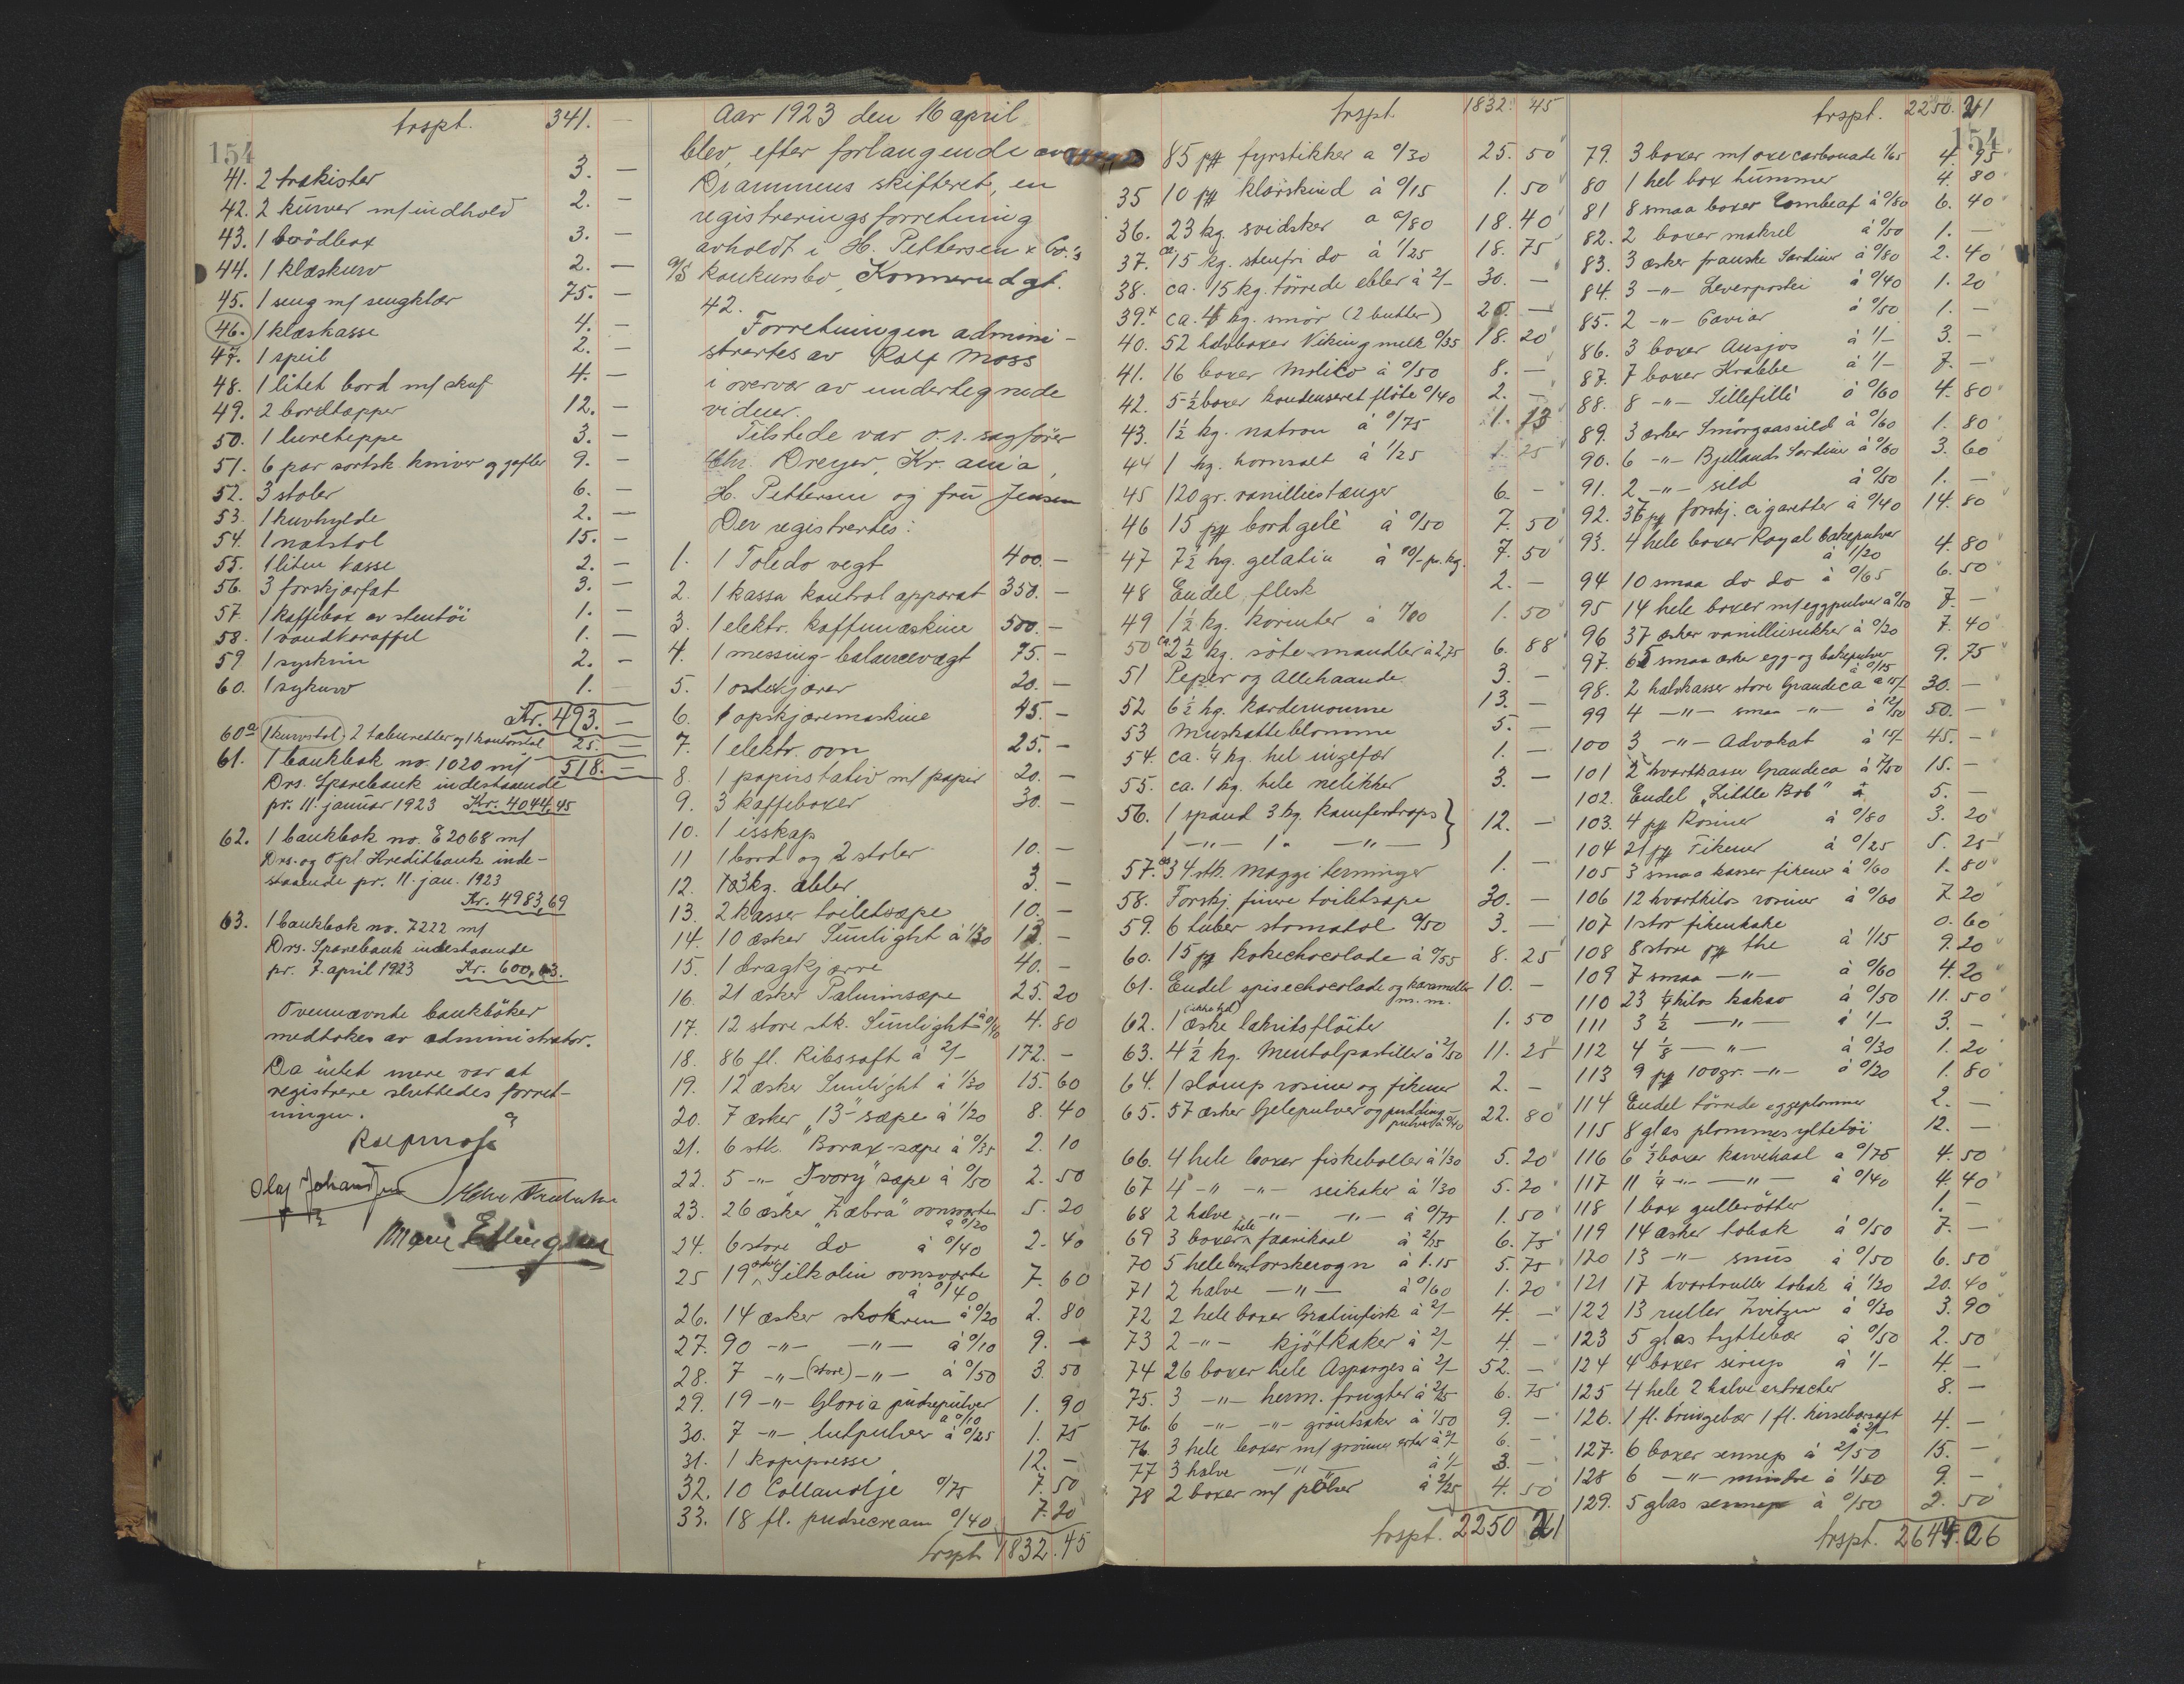 154
trspt. 341. —
41. 2 trækister 3. —
42. 2 kurver m/ indhold 2. —
43. 1 brödbox 3. —
44. 1 klæskurv 2. —
45. 1 seng m/ sengklær 75. —
46. 1 klæskasse 4. —
47. 1 speil 2. —
48. 1 litet bord m/ skuf 4. —
49. 2 bordtæpper 12. —
50. 1 lureteppe 3. —
51. 6 par sortsk. kniver og gafler 9. —
52. 3 stoler 6. —
53. 1 kurvhylde 2. —
54. 1 natstol 15. —
55. 1 liten kasse 2. —
56. 3 forskjærfat 3. —
57. 1 kaffebox av stentöi 1. —
58. 1 vandkaraffel 1. —
59. 1 syskrin 2. —
60. 1 sykurv 1. —
Kr. 493. —
60a 1 kurvstol, 2 taburetter og 1 kontorstol 25. —
518. —
61. 1 bankbok no. 1020 m/
Drs. Sparebank indestaaende
pr. 11. januar 1923 Kr. 4044,45
62. 1 bankbok no. E2068 m/
Drs. og Opl. Kreditbank inde-
staaende pr. 11. jan. 1923
Kr. 4983,69
63. 1 bankbok no. 7222 m/
Drs. Sparebank indestaaende
pr. 7. april 1923 Kr. 600,03.
Ovennævnte bankböker
medtokes av administrator.
Da intet mere var at
registrere sluttedes forret-
ningen.
Rolf Moss
Olaf Johansen
Marie Ellingsen
Aar 1923 den 16 april
blev, efter forlangende av
Drammens skifteret, en
registreringsforretning
avholdt i H. Pettersen & Co.'s
A/S konkursbo, Konnerudgt.
42.
Forretningen admini-
strertes av Rolf Moss
i overvær av undertegnede
vidner.
Tilstede var o.r. sagförer
Chr. Dreyer, Kr.ania,
H. Pettersen og fru Jensen
Der registrertes:
1. 1 Toledo vegt 400. —
2. 1 kassa kontrol apparat 350. —
3. 1 elektr. kaffemaskine 500. —
4. 1 messing-balancevægt 75. —
5. 1 osteskjærer 20. —
6. 1 opskjæremaskine 45. —
7. 1 elektr. ovn 25. —
8. 1 papirstativ m/ papir 20. —
9. 3 kaffeboxer 30. —
10. 1 isskap
11 1 bord og 2 stoler 10. —
12. 3 kg. æbler 3. —
13. 2 kasser toiletsæpe 10. —
14. 10 æsker Sunlight à 1/30 13. —
15. 1 dragkjærre 40. —
16. 21 æsker Palminsæpe 25. 20
17. 12 store stk. Sunlight à 0/40 4. 80
18. 86 fl. Ribssaft à 2/- 172. —
19. 12 æsker Sunlight à 1/30 15. 60
20. 7 æsker "13"-sæpe à 1/20 8. 40
21. 6 stk. Borax-sæpe à 0/35 2. 10
22. 5 -"- "Ivory" sæpe à 0/50 2. 50
23. 26 æsker "Zebra" ovnsværte à 0/20 5. 20
24. 6 store do à 0/40 2. 40
25 19 æsker Silkolin ovnsværte 7. 60
à 0/40
26. 14 æsker skokrem à 0/20 2. 80
27. 90 -"- -"- à 0/10 9. —
28. 7 -"- (store) -"- à 0/50 3. 50
29. 19 -"- Gloria pudsepulver 1. 90
à 0/10
30. 7 -"- lutpulver à 0/25 1. 75
31. 1 kopipresse 12. —
32. 10 Collanolje 0/75 7. 50
33. 18 fl. pudsecream 0/40 7. 20
trspt. 1832. 45
trspt. 1832. 45
85 pk fyrstikker a 0/30 25. 50
35 10 pk klarskind à 0/15 1. 50
36. 23 kg. svidsker a 0/80 18. 40
37. ca 15 kg. stenfri do à 1/25 18. 75
38. ca. 15 kg. törrede ebler à 2/- 30. —
39.x ca. 4 kg. smör (2 butter) 20. —
40. 52 halvboxer Viking melk 0/35 18. 20
41. 16 boxer Moliko à 0/50 8. —
42. 5 ½ boxer kondenseret flöte 0/40 2. —
43. 1½ kg. natron à 0/75 1. 13
44 1 kg. hornsalt à 1/25 1. 25
45 120 gr. vanillestænger 6. —
46 15 pk bordgelé à 0/50 7. 50
47 7½ hg. gelatin à 10/- pr. kg. 7. 50
48 Endel flesk 2. —
49 1½ kg. korinter à 1/00 1. 50
50 ca. 2½ kg. söte mandler à 2,75 6. 88
51 Peper og Allehaande 3. —
52 6½ hg. kardemomme 13. —
53 Muskatteblomme 5. —
54. ca. ¼ kg. hel ingefær 1. —
55. ca. 1 kg. hele nelikker 3. —
56. 1 spand 3 kg. kamferdrops } 12. —
1 -"- 1 " -"-
57. ca 34 stk. Maggi terninger 1. —
58. Forskj. finere toiletsæpe 30. —
59. 6 tuber stomatol 0/50 3. —
60. 15 pk kokechocolade à 0/55 8. 25
61. Endel spisechocolade og karameller 10. —
m. m.
62. 1 (ikke hel) æske lakritsflöiter 1. 50
63. 4½ kg. Mentolpastiller à 2/50 11. 25
64. 1 slump rosiner og fikener 2. —
65. 57 æsker Gelepulver og pudding- 22. 80
pulver à 0/40
66. 4 hele boxer fiskeboller à 1/30 5. 20
67 4 -"- -"- seikaker à 1/30 5. 20
68 2 halve -"- -"- à 0/75 1. 50
69 3 boxer hele faarikaal à 2/25 6. 75
70 5 hele boxer torskerogn à 1.15 5. 75
71 2 halve -"- à 0/60 1. 20
72 2 hele boxer Gratinfisk à 2/- 4. —
73 2 -"- kjötkaker à 2/- 4. —
74 26 boxer hele Asparges à 2/- 52. —
75. 3 -"- herm. frugter à 2/25 6. 75
76. 6 -"- -"- grönsaker à 1/50 9. —
76. 3 hele boxer m/ grönne erter à 2/- 6. —
77 3 halve -"- à 1/- 3. —
78 2 boxer m/ pölser à 2/25 4. 50
trspt. 2250 21
trspt. 2250. 21
154
79. 3 boxer m/ oxecarbonade 1/65 4. 95
80 1 hel box hummer 4. 80
81 8 smaa boxer Cornbeaf à 0/80 6. 40
82. 2 boxer makrel à 0/50 1. —
83. 3 æsker franske Sardiner à 0/80 2. 40
84. 3 -"- Leverpostei à 0/40 1. 20
85. 2 -"- Caviar à 0/50 1. —
86. 3 boxer Ansjos à 1/- 3. —
87. 7 boxer Krabbe à 1/- 7. —
88. 8 -"- Sillefilli à 0/60 4. 80
89. 3 æsker Smörgaassild à 0/60 1. 80
90. 6 -"- Bjellands Sardiner à 0/60 3. 60
91. 2 -"- sild à 0/50 1. —
92. 37 pk forskj. cigaretter à 0/40 14. 80
93. 4 hele boxer Royal bakepulver 4. 80
à 1/20
94 10 smaa do do à 0/65 6. 50
95 14 hele boxer m/ eggpulver à 0/50 7. —
96 37 æsker vanilliesukker à 0/20 7. 40
97. 65 smaa æske egg- og bakepulver 9. 75
à 0/15
98. 2 halvkasser store Grandeca à 15/- 30. —
99 4 -"- smaa -"- à 12/50 50. —
100 3 -"- Advokat à 15/- 45. —
101 2 kvartkasser Grandeca à 7/50 15. —
102. Endel "Little Bob" 5. —
103. 4 pk Rosiner à 0/80 3. 20
104 21 pk Fikener à 0/25 5. 25
105 3 smaa kasser fikener à 0/60 1. 80
106 12 kvartkilos rosiner à 0/60 7. 20
107 1 stor fikenkake 0. 60
108 8 store pk the à 1/15 9. 20
109 7 smaa -"- à 0/60 4. 20
110 23 ¼ kilos kakao à 0/50 11. 50
111 3 ½ -"- à 1/- 3. —
112 4 ⅛ -"- à 0/30 1. 20
113 9 pk 100 gr. -"- à 0/20 1. 80
114 Endel törrede eggeplommer 2. —
115 8 glas plommesyltetöi 12. —
116 6 ½ boxer karvekaal a 0/75 4. 50
117 11 ¼ -"- -"- à 0/40 4. 40
118 1 box gullerötter 1. —
119 14 æsker tobak à 0/50 7. —
120 13 -"- snus à 0/50 6. 50
121 17 kvartruller tobak à 1/20 20. 40
122 13 ruller à 0/30 3. 90
123 5 glas tyttebær à 0/50 2. 50
124 4 boxer sirup à 1/- 4. —
125 4 hele 2 halve extracter 8. —
126. 1 fl. bringebær 1 fl. kirsebærsaft 4. —
à 2/-
127. 6 boxer sennep à 2/50 15. —
128 6 -"- mindre à 1/50 9. —
129. 5 glas sennep à 0/50 2. 50
trspt. 2644. 26